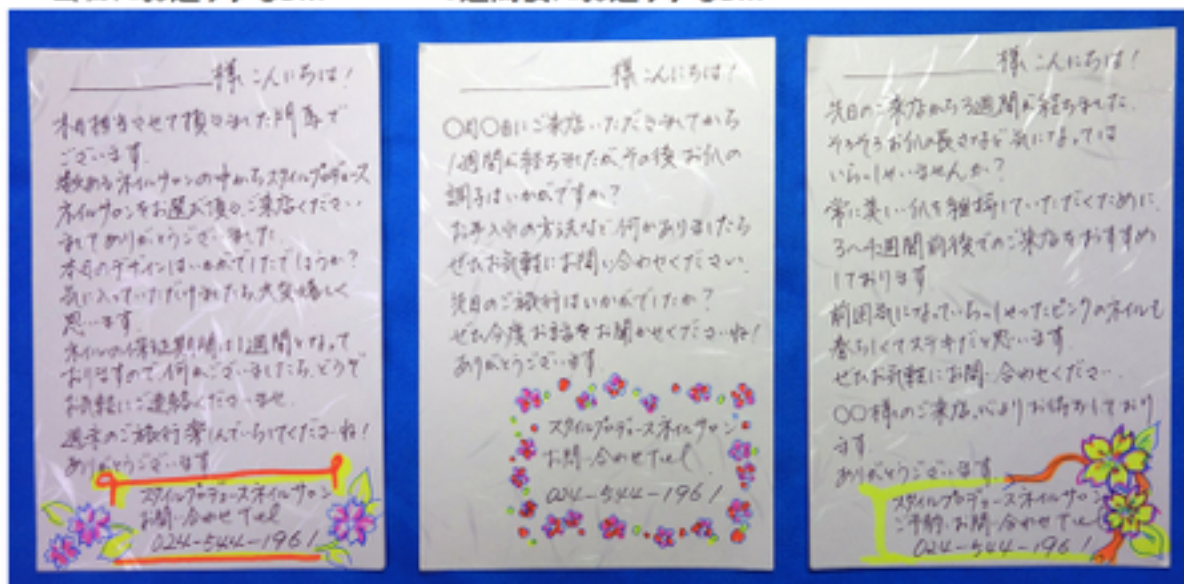 ______様 こんにちは!
本日担当させて頂きました門馬で
ございます。
数あるネイルサロンの中からスタイルプロデュース
ネイルサロンをお選び頂き、ご来店ください
ましてありがとうございました。
本日のデザインはいかがでしたでしょうか?
気に入っていただけましたら大変嬉しく
思います。
ネイルの保証期間は1週間となって
おりますので、何かございましたら、どうぞ
お気軽にご連絡くださいませ。
週末のご旅行楽しんでいらしてくださいね!
ありがとうございます。
スタイルプロデュースネイルサロン
お問い合わせTel
024-544-1961
______様 こんにちは!
○月○日にご来店いただきましてから
1週間が経ちましたが、その後お爪の
調子はいかがですか?
お手入れの方法など何かありましたら
ぜひお気軽にお問い合わせください。
先日のご旅行はいかがでしたか?
ぜひ今度お話をお聞かせくださいね!
ありがとうございます。
スタイルプロデュースネイルサロン
お問い合わせTel
024-544-1961
______様 こんにちは!
先日のご来店から3週間が経ちました。
そろそろお爪の長さなど気になっては
いらっしゃいませんか?
常に美しい爪を維持していただくために、
3〜4週間前後でのご来店をおすすめ
しております。
前回気になっていらっしゃったピンクのネイルも
春らしくてステキだと思います。
ぜひお気軽にお問い合わせください。
○○様のご来店、心よりお待ちしており
ます。
ありがとうございます。
スタイルプロデュースネイルサロン
ご予約・お問い合わせTel
024-544-1961